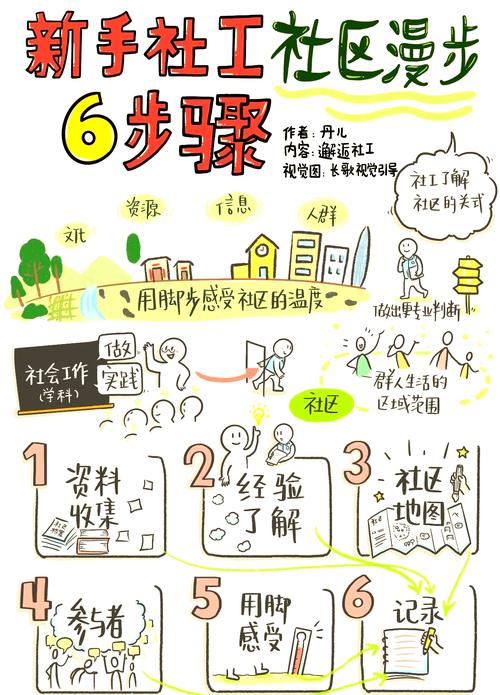 新手社工社区漫步
6步骤
作者：丹儿
内容：邂逅社工
视觉图：长歌视觉引导
社工了解
社区的关式
文化
资源
信息
人群
用脚步感受社区的温度
做出更专业判断
社会工作
(学科)
做
实践
社区
群人生活的
区域范围
1
资料
收集
2
经验
了解
3
社区
地图
社区
4
参与者
5
用脚
感受
6
记录